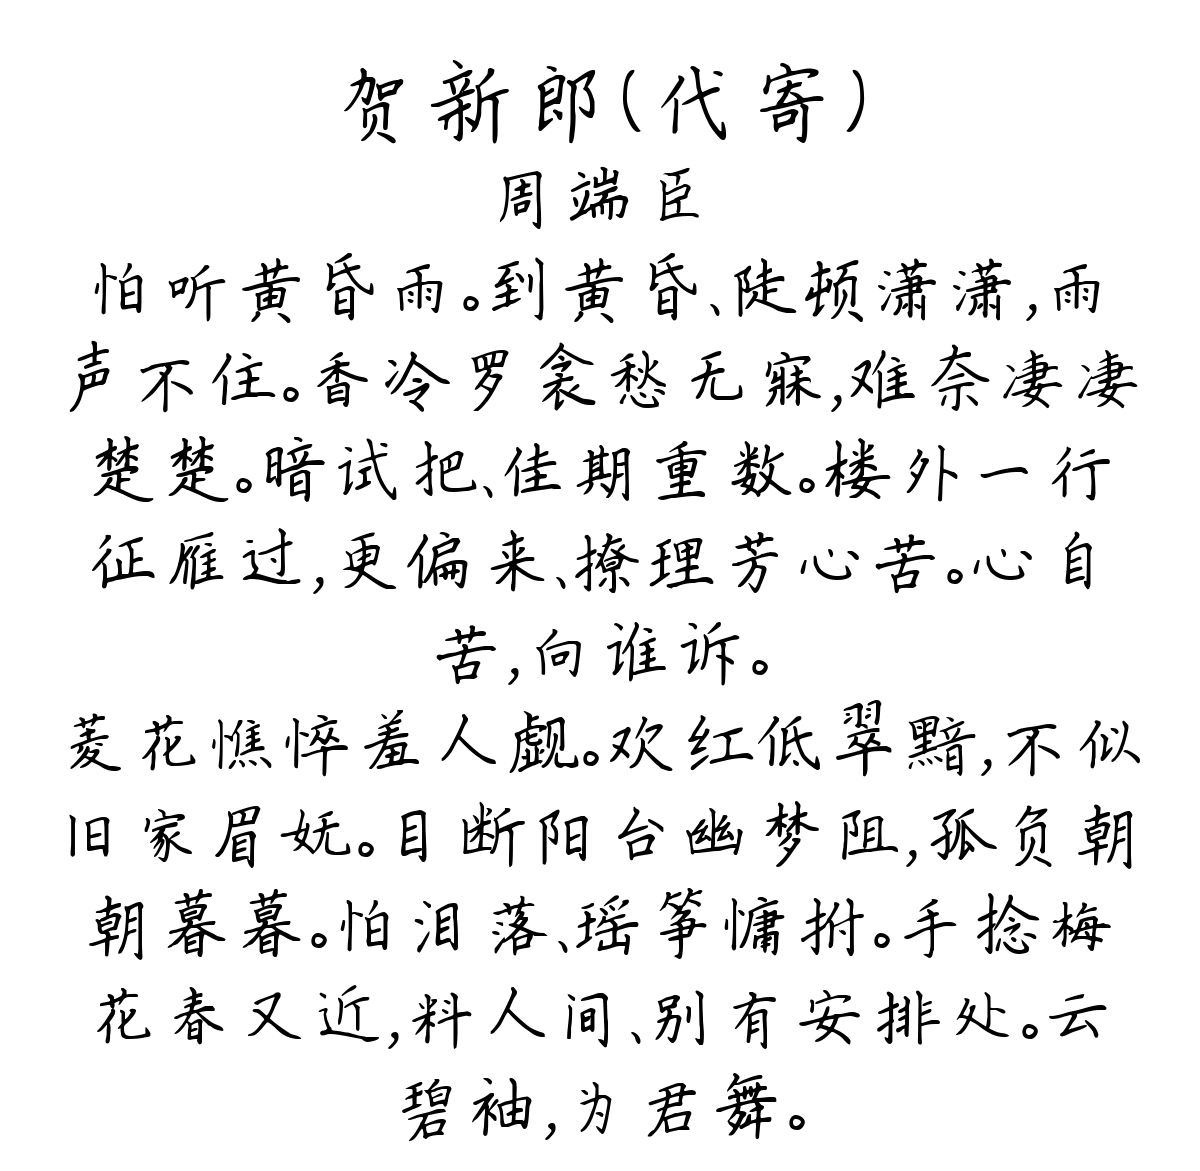 贺新郎(代寄)
周端臣
怕听黄昏雨。到黄昏、陡顿潇潇,雨
声不住。香冷罗衾愁无寐,难奈凄凄
楚楚。暗试把、佳期重数。楼外一行
征雁过,更偏来、撩理芳心苦。心自
苦,向谁诉。
菱花憔悴羞人觑。欢红低翠黯,不似
旧家眉妩。目断阳台幽梦阻,孤负朝
朝暮暮。怕泪落、瑶筝慵拊。手捻梅
花春又近,料人间、别有安排处。云
碧袖,为君舞。